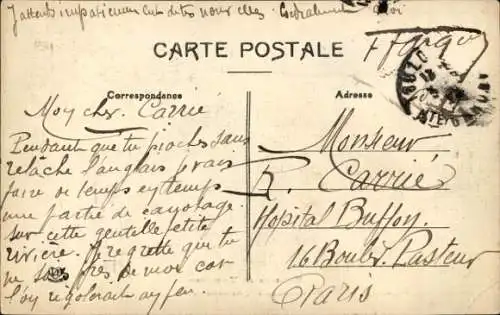 J'attends impatiemment de tes nouvelles. Cordialement
CARTE POSTALE
Correspondance
Adresse
Mon cher Carrié
Pendant que tu pioches sans
relâche l'anglais je vais
faire de temps en temps
une partie de canotage
sur cette gentille petite
rivière. Je regrette que tu
ne sois près de moi car
l'on rigolerait un peu.
Monsieur
R. Carrié
Hopital Buffon
16 Boulv. Pasteur
Paris